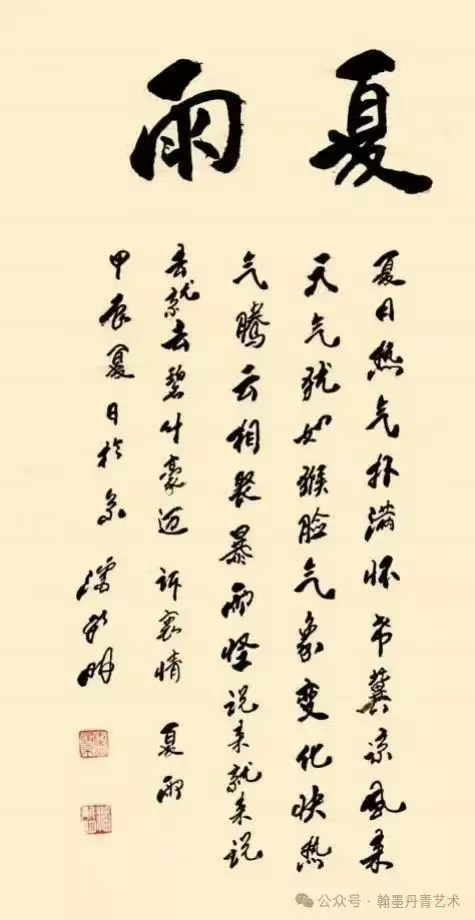 夏雨
夏日热气扑满怀希冀凉风来
天气犹如猴脸气象变化快热
气腾云相聚暴雨怪说来就来说
去就去碧叶豪迈 诉衷情 夏雨
甲辰夏日於京
公众号·翰墨丹青艺术